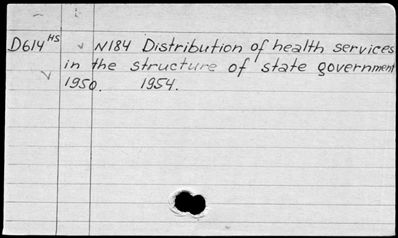 D614 HS ✓ N184 Distribution of health services
✓ in the structure of state government
1950. 1954.